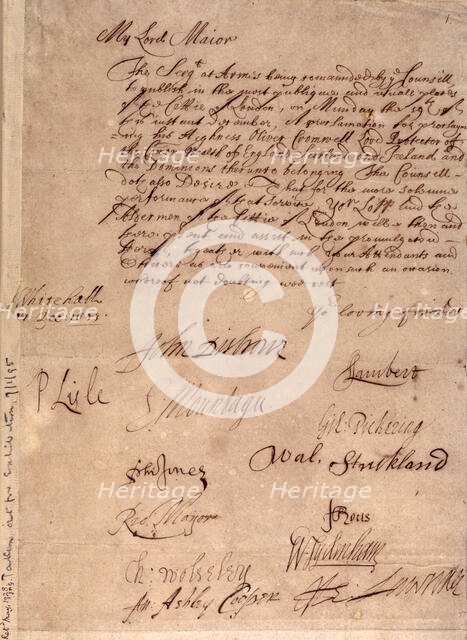 1.
My Lord Maior
The Serg.t at Armes being comanded by ye Counsill
to publish in the most publique and usuall places
of ye Cittie of London, on Munday the 19th of
this instant December, A proclamation for proclaym
ing his Highness Oliver Cromwell Lord Protector of
the Comon Wealth of England Scotland and Ireland and
the Dominions thereunto belonging The Counsill
doe also Desire That for the more solemne
performance of that service Yor Lopp and the
Aldermen of the Cittie of London will be then and
there present and assist in the promulgation
thereof, together with such your Attendants and
Officers as is convenient upon such an occasion
whereof not doubting wee rest
Whitehall
Dec: 1653
Yor loving friends
John Disbrowe
Lambert
P Lisle
E Mountagu
Gil: Pickering
Wal. Strickland
John Jones
Ric. Maijor
J Rous
W Sydenham
Ch: Wolseley
An: Ashley Cooper
He Lawrence
Heritage
Heritage
Heritage
Heritage
Heritage
Heritage